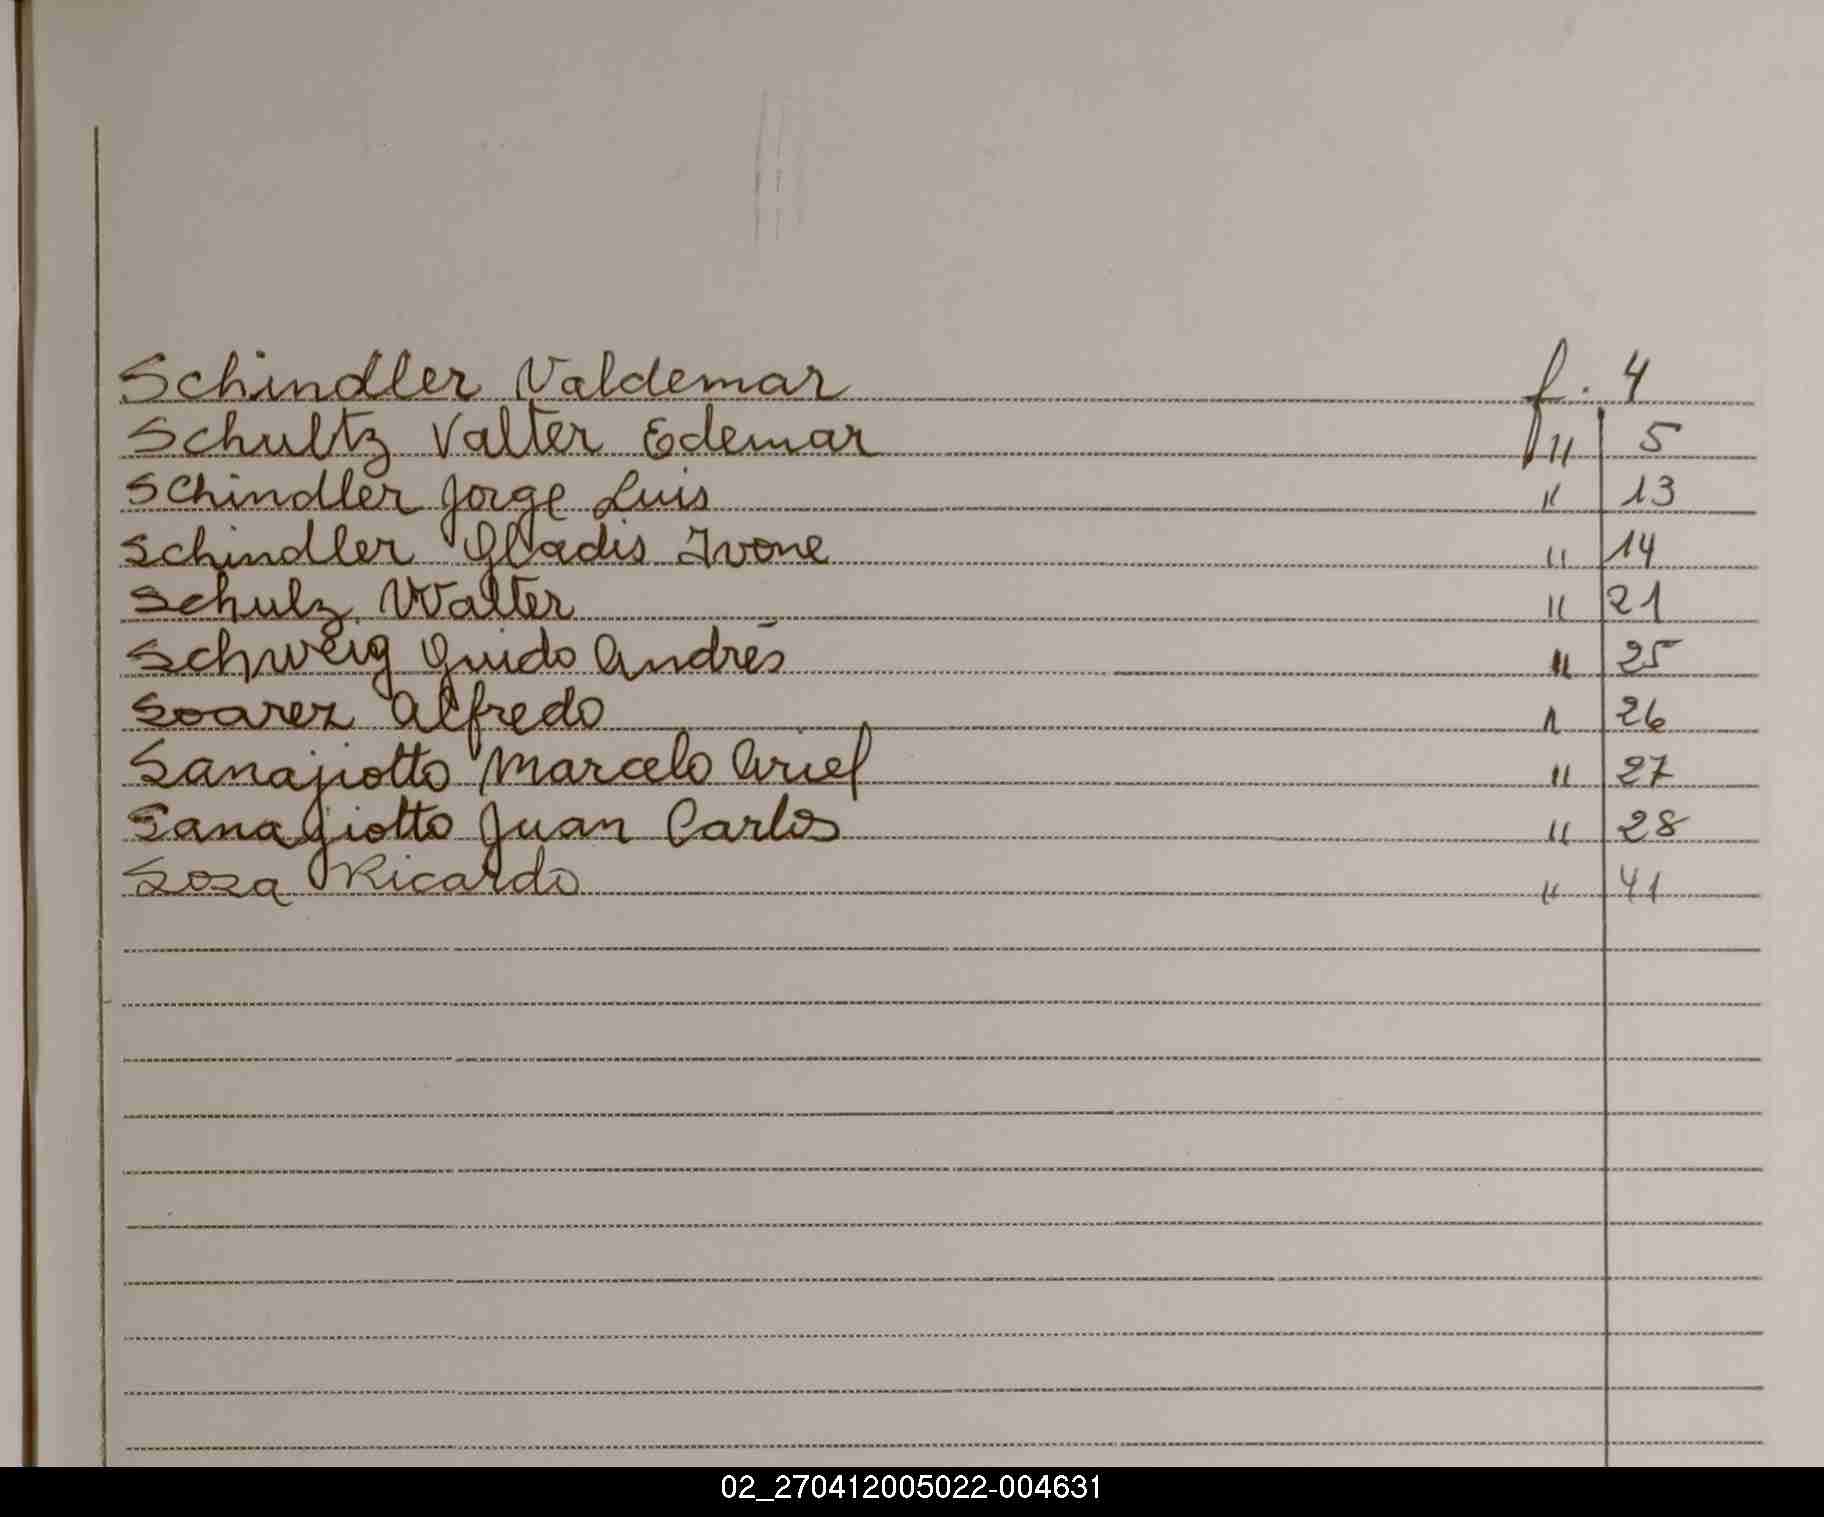 Schindler Valdemar f. 4
Schultz Valter Edemar " 5
Schindler Jorge Luis " 13
Schindler Gladis Ivone " 14
Schulz Walter " 21
Schweig Guido Andrés " 25
Soarez Alfredo " 26
Sanajiotto Marcelo Ariel " 27
Sanagiotto Juan Carlos " 28
Sosa Ricardo " 41
02_270412005022-004631